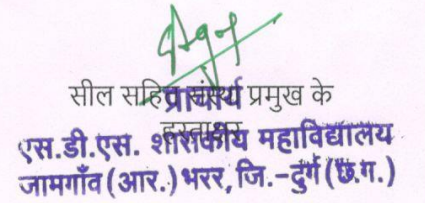 सील सहित संस्था प्रमुख के
हस्ताक्षर
प्राचार्य
एस.डी.एस. शासकीय महाविद्यालय
जामगाँव (आर.) भरर, जि.-दुर्ग (छ.ग.)